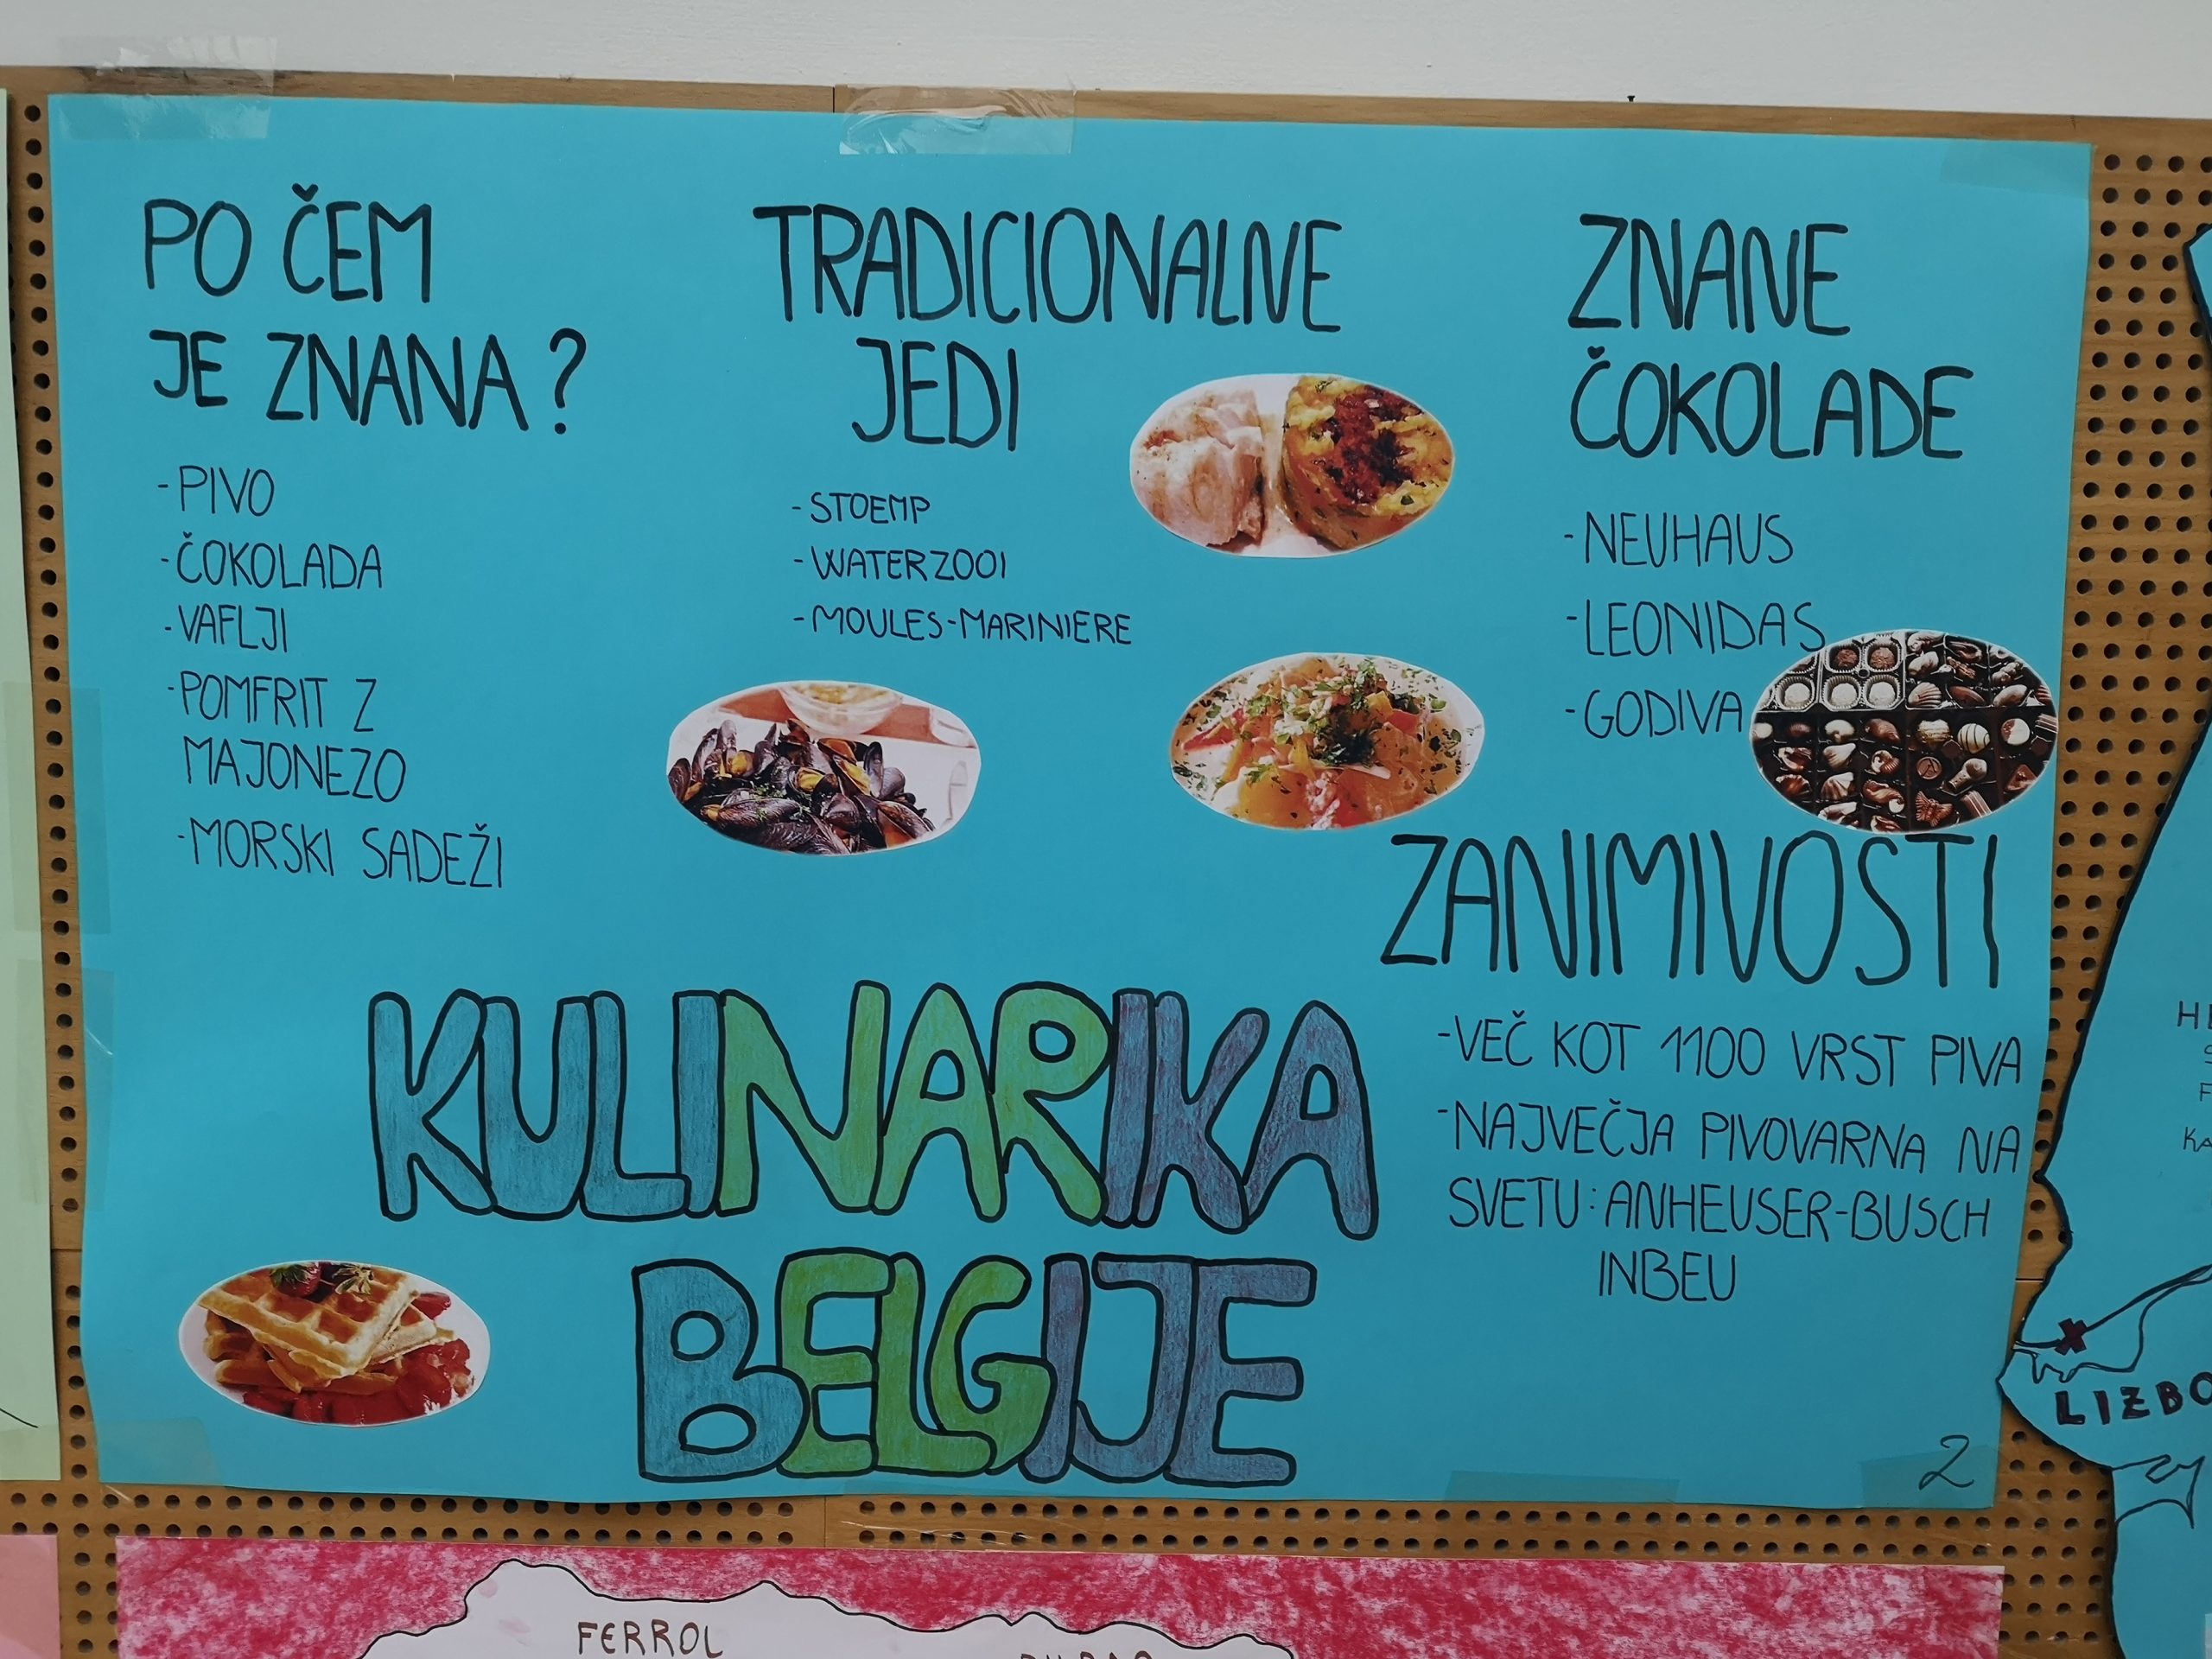 PO ČEM
JE ZNANA?
-PIVO
-ČOKOLADA
-VAFLJI
-POMFRIT Z
MAJONEZO
-MORSKI SADEŽI
TRADICIONALNE
JEDI
-STOEMP
-WATERZOOI
-MOULES-MARINIERE
ZNANE
ČOKOLADE
-NEUHAUS
-LEONIDAS
-GODIVA
ZANIMIVOSTI
-VEČ KOT 1100 VRST PIVA
-NAJVEČJA PIVOVARNA NA
SVETU: ANHEUSER-BUSCH
INBEU
KULINARIKA
BELGIJE
2
LIZBO
FERROL